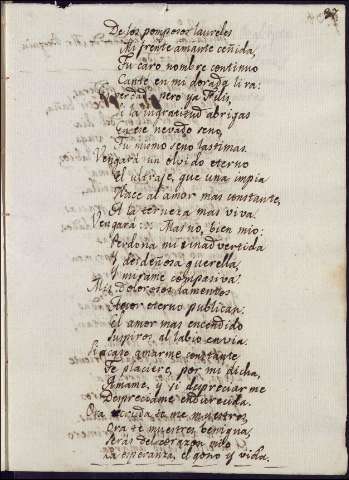 De los pomposos laureles
Mi frente amante ceñida,
Tu caro nombre continuo
Cante en mi dorada lira:
verdad pero ya Filis,
Si la ingratitud abrigas
En ese nevado seno,
Tu mismo seno lastimas.
Vengará un olvido eterno
El ultraje, que una impia
Hace al amor mas constante,
A la terneza mas viva.
Vengará::: Mas no, bien mio:
Perdona mi inadvertida
Y desdeñosa querella,
Y mirame compasiva.
Mis dolorosos lamentos
eterno publican:
El amor mas encendido
Suspiros al labio envia.
Si acaso amarme constante
Te placiere, por mi dicha,
Amame, y si despreciar me
Despreciame endurecida.
Ora cruda te me muestres,
Ora te muestres benigna,
Serás del corazon mio
La esperanza, el gozo y vida.